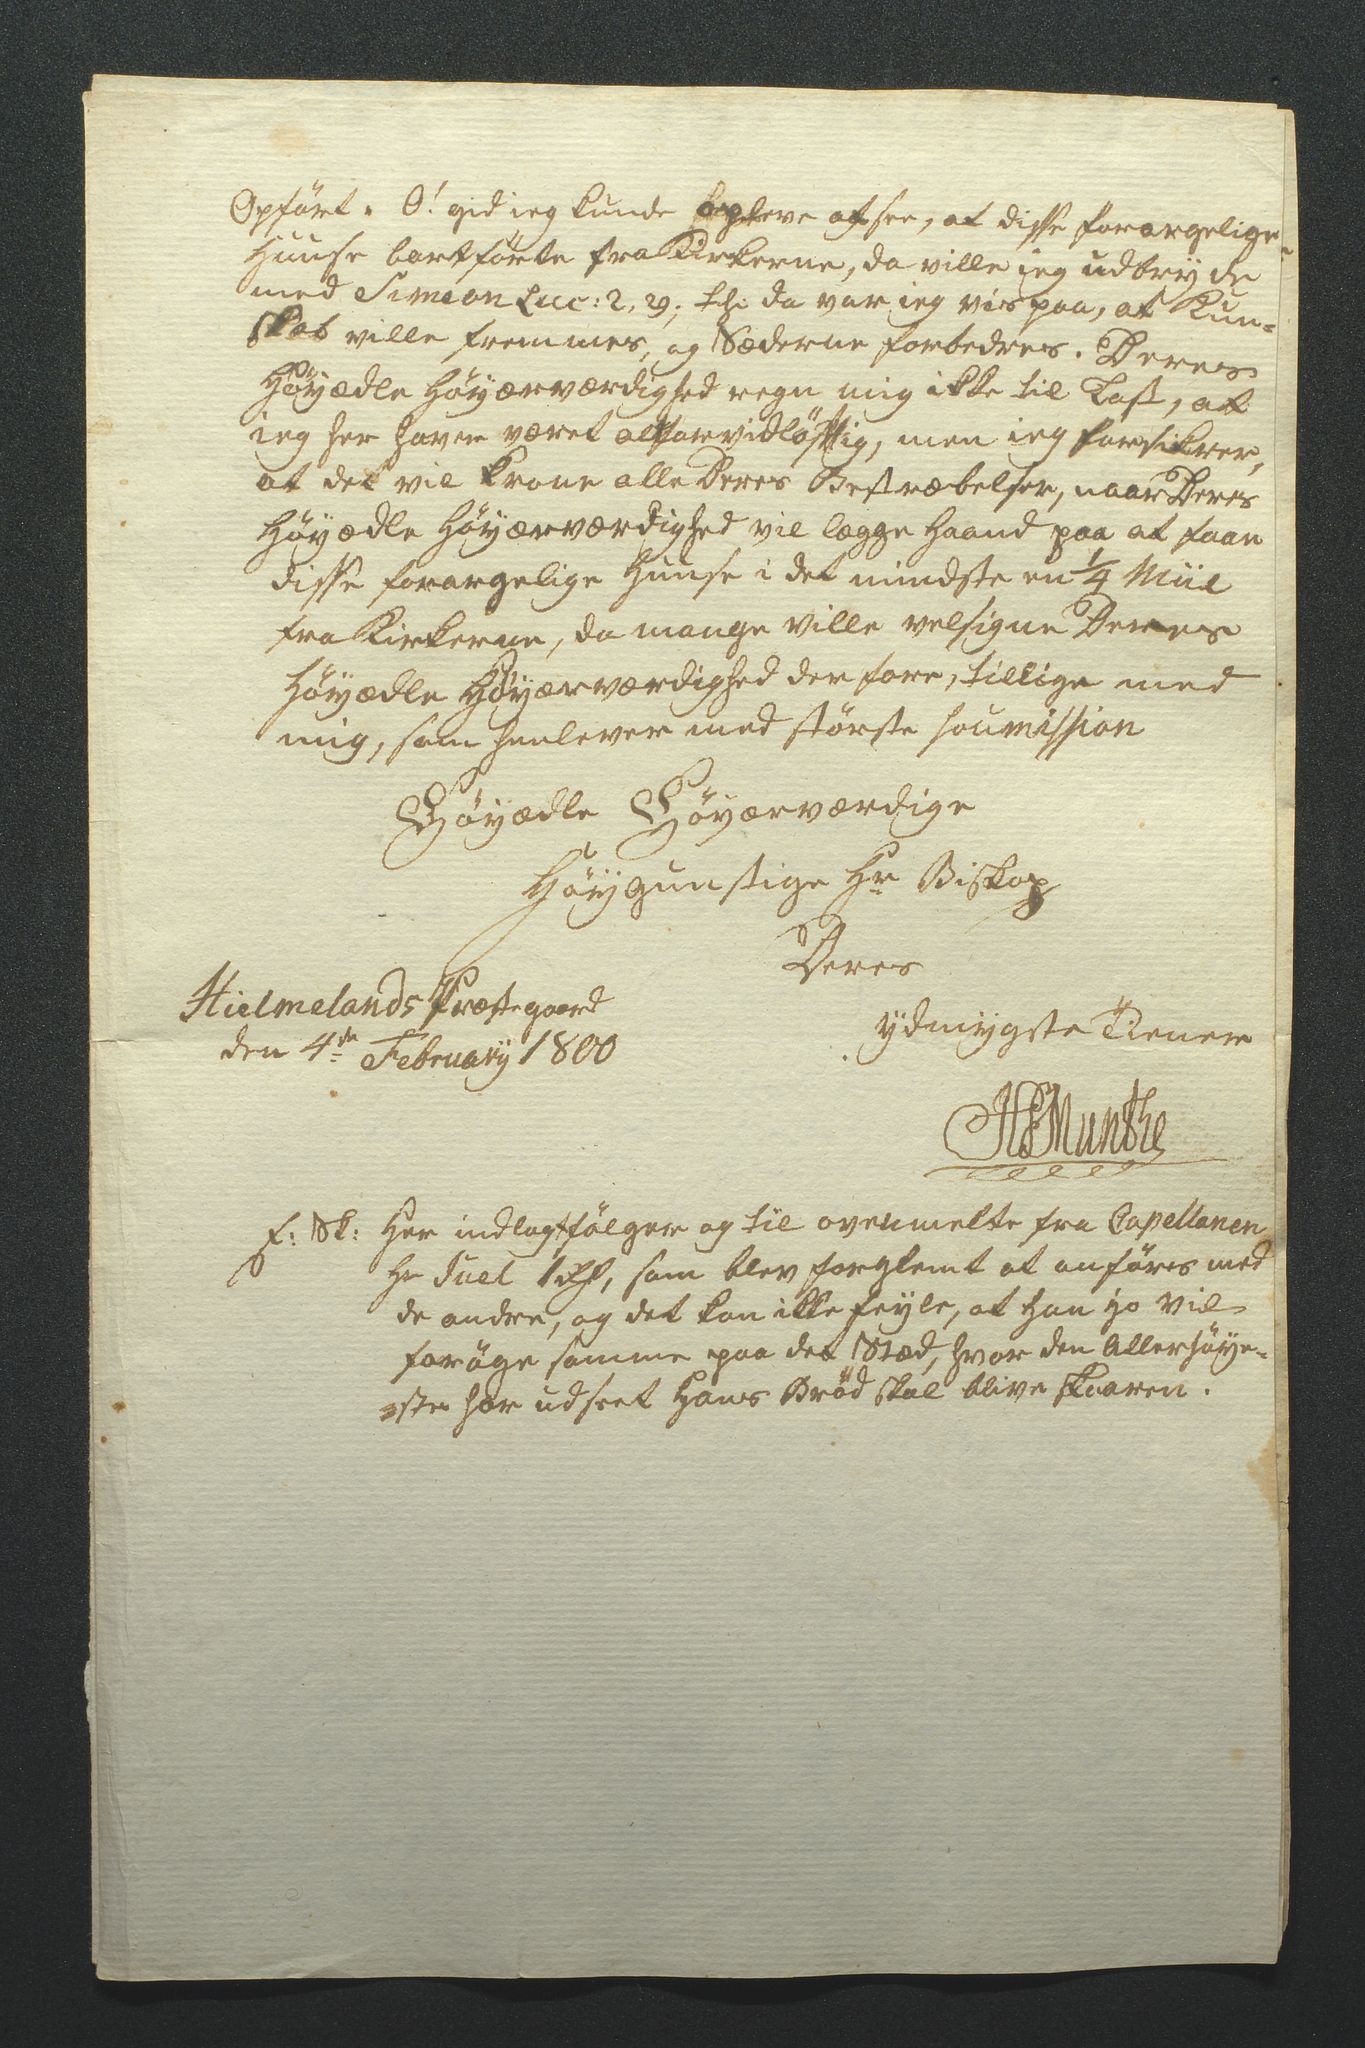 Opført. O! gid ieg kunde opleve at see, at disse forargelige
Huuse bortførte fra Kirkerne, da ville jeg udbryde
med Simeon Luc: 2, 29; thi da var ieg vis paa, at Kun-
skab ville fremmes, og Sæderne forbedres. Deres
Höyædle Höyærværdighed regn mig ikke til Last, at
ieg her haver været altfor vidløftig, men ieg forsikrer,
at det vil krone alle Deres Bestræbelser, naar Deres
Höyædle Höyærværdighed vil lægge Haand paa at faae
disse forargelige Huuse i det mindste en 1/4 Miil
fra Kirkerne, da mange ville velsigne Deres
Höyædle Höyærværdighed derfore, tillige med
mig, som henlever med største soumission
Höyædle Höyærværdige
Höygunstige Hr Biskop
Deres
Hielmelands Præstegaard
den 4de February 1800
ydmygste Tiener
HSMunthe
E: Sk: Her indlagt følger og til ovenmelte fra Capellanen
Hr Juel 1 rd, som blev forglemt at anføres med
de andre, og det kan ikke feyle, at han jo vil
forøge samme paa det Stæd, hvor den Allerhöye-
ste har udseet Hans Bröd skal blive skaaren.